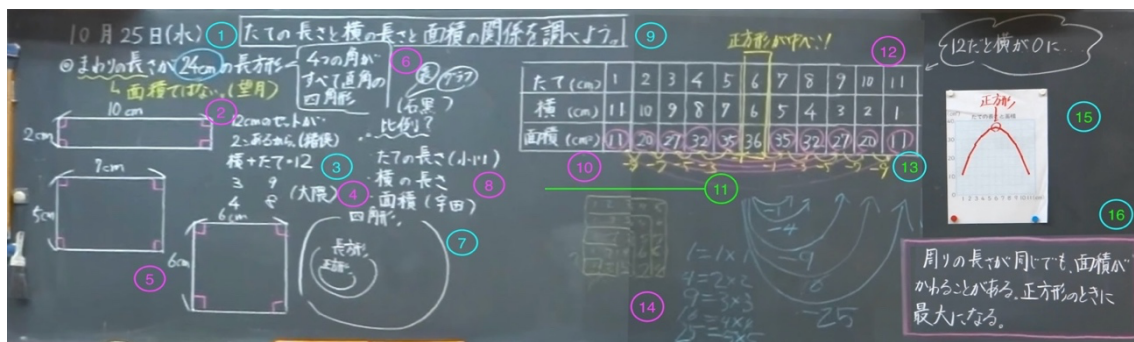 10月25日(水)
①
たての長さと横の長さと面積の関係を調べよう。
⑨
◎まわりの長さが24cmの長方形
4つの角が
すべて直角の
四角形
⑥
↳面積ではない。(望月)
10cm
②
2cm
12cmのセットが
2こあるから
横+たて=12
③
3 9
4 8
(大隈)
④
7cm
5cm
6cm
6cm
⑤
表
グラフ
比例?
・たての長さ(小川)
・横の長さ
・面積(宇田)
⑧
四角形
長方形
正方形
⑦
正方形が中心!
⑫
12だと横が0に…
たて(cm) 1 2 3 4 5 6 7 8 9 10 11
横(cm) 11 10 9 8 7 6 5 4 3 2 1
面積(cm²) 11 20 27 32 35 36 35 32 27 20 11
⑩
⑬
⑪
-1
-4
-9
-25
1=1×1
4=2×2
9=3×3
16=4×4
25=5×5
⑭
正方形
⑮
⑯
周りの長さが同じでも、面積が
かわることがある。正方形のときに
最大になる。